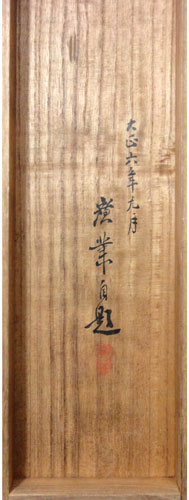 大正六年九月
廣業自題